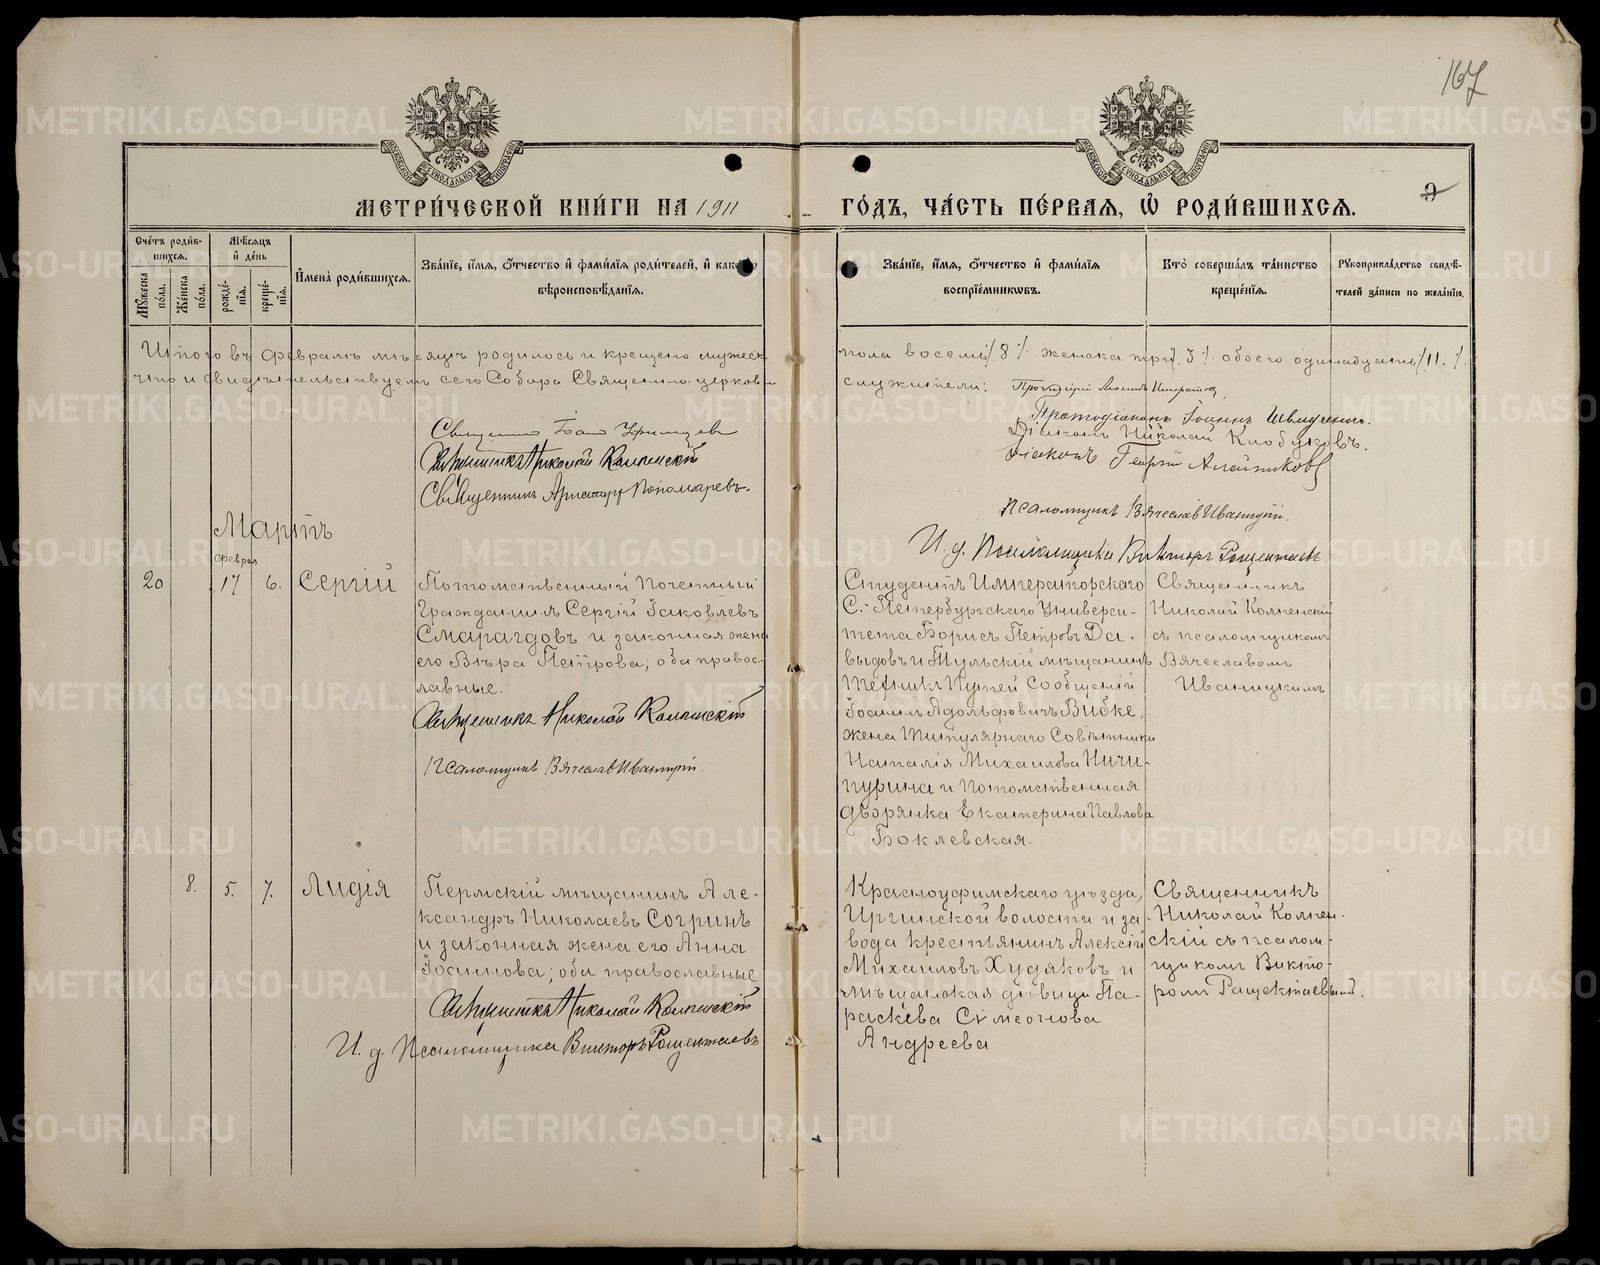 167
МОСКОВСКОЙ СѴНОДАЛЬНОЙ ТИПОГРАФІИ
МОСКОВСКОЙ СѴНОДАЛЬНОЙ ТИПОГРАФІИ
МЕТРИ́ЧЕСКОЙ КНИ́ГИ НА 1911 ГО́ДЪ, ЧА́СТЬ ПЕ́РВАЯ, Ѡ҆ РОДИ́ВШИХСЯ.
Сче́тъ роди́в-
шихся.
Мꙋ́жеска по́ла.
Же́нска по́ла.
Мѣ́сяцъ
и҆ де́нь
рожде́-
нїя.
креще́-
нїя.
И҆мена̀ роди́вшихся.
Зва́нїе, и҆́мя, ѻ҆́тчество и҆ фами́лїя роди́телей, и҆ како́гѡ
вѣроисповѣ́данїя.
Зва́нїе, и҆́мя, ѻ҆́тчество и҆ фами́лїя
воспрїе́мникѡвъ.
Кто̀ соверша́лъ та́инство
креще́нїя.
Рꙋкоприкла́дство свидѣ́-
телей за́писи по жела́нїю.
Итого въ февралѣ мѣсяцѣ родилось и крещено мужеск.
пола восемь /8/ женска три /3/ обоего одинадцать /11./
что и свидѣтельствуемъ сего Собора Священно-церковно
служители:
Протодіаконъ Іоаннъ
Священникъ Іоаннъ
Діаконъ Николай Клобуковъ.
Священникъ Николай Колпенскій
Діаконъ Георгій
Священникъ Аристархъ Пономаревъ.
Псаломщикъ Вячеславъ Иваницкій.
Мартъ
И. д. Псаломщика Викторъ Ращектаевъ
феврал
20
17
6.
Сергій
Потомственный Почетный
Гражданинъ Сергій Іаковлевъ
Смарагдовъ и законная жена
его Вѣра Петрова; оба правос-
лавные.
Священникъ Николай Колпенскій
Псаломщикъ Вячеславъ Иваницкій.
Студентъ Императорскаго
С.-Петербургскаго Универси-
тета Борисъ Петровъ Да-
выдовъ и Тульскій мѣщанинъ
техникъ Путей Сообщеній
Іоаннъ Адольфовичъ Вибке,
жена Титулярнаго Совѣтника
Наталія Михаилова Ничи-
пурина и Потомственная
дворянка Екатерина Павлова
Боклевская.
Священникъ
Николай Колпенскій
съ псаломщикомъ
Вячеславомъ
Иваницкимъ
8.
5.
7.
Лидія
Пермскій мѣщанинъ Але-
ксандръ Николаевъ Согринъ
и законная жена его Анна
Іоаннова; оба православные
Священникъ Николай Колпенскій
И. д. Псаломщика Викторъ Ращектаевъ
Красноуфимскаго уѣзда,
Иргинской волости и за-
вода крестьянинъ Алексій
Михаиловъ Худяковъ и
мѣщанская дѣвица Па-
раскева Сѵмеонова
Андреева
Священникъ
Николай Колпен-
скій съ псалом-
щикомъ Викто-
ромъ Ращектаевымъ.